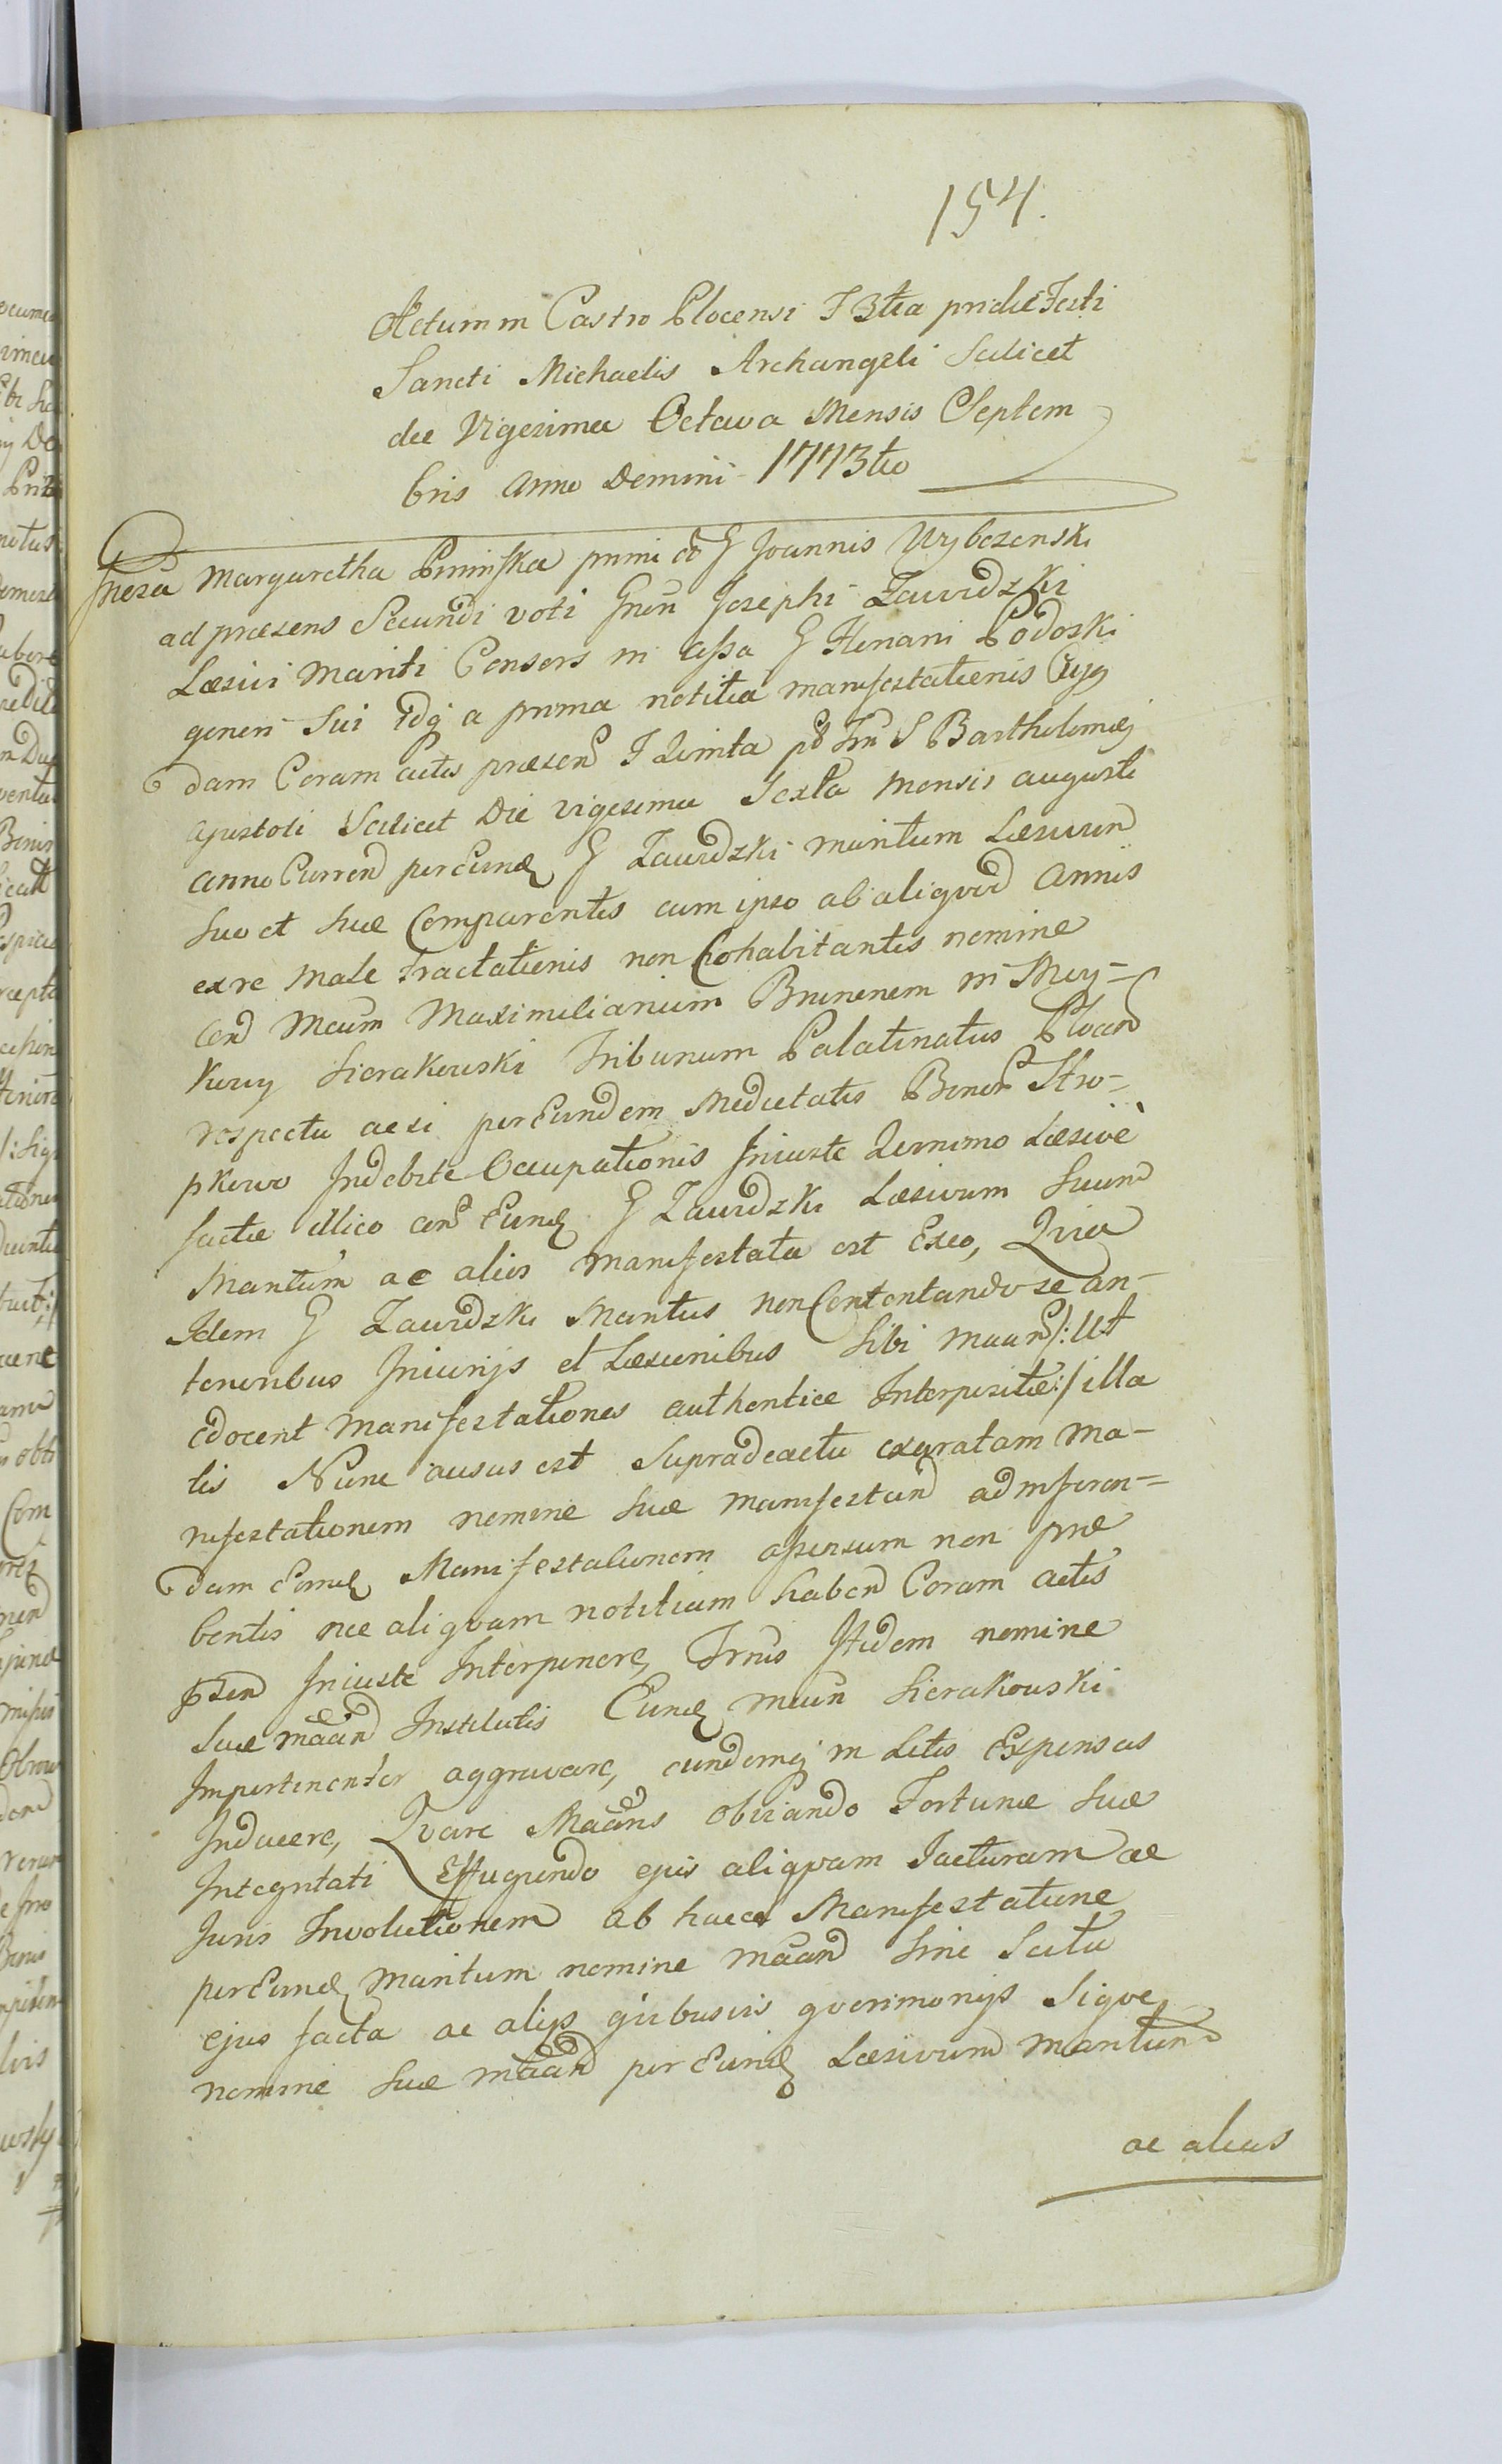 154.
Actum in Castro Plocensi F 3tia pridie Festi
Sancti Michaelis Archangeli Scilicet
die Vigesima Octava Mensis Septem
bris Anno Domini 1773tio
Gnesa Margaretha Pninska primi et G Joannis Wybczenski
ad præsens Secundi voti Gnen Josephi Zawidzki
Læsivi Mariti Consors in assa G Floriani Podoski
generi Sui idq a prima notitia manifestationis
dam Coram actis præsen F Quinta pt Fm S Bartholomæj
Apostoli Scilicet Die vigesima Sexta Mensis augusti
anno Curren per eund G Zawidzki maritum Læsivum
suo et suæ Comparentis cum ipso ab aliquod annis
ex re male tractationis non Cohabitantis nomine
con Mcum Maximilianum Brunonem in Mey-
Kury Sierakowski Tribunum Palatinatus Plocen
respectu acsi per Eundem Medietatis Bonor Stro-
pkowo Indebite Occupationis Iniuste Quinimo Læsive
factæ illico con Eund G Zawidzki Læsivum Suum
Maritum ac alios manifestata est Exeo, Quia
Idem G Zawidzki Maritus non Contentando se an-
terioribus Iniurijs et Læsionibus Sibi Maan /: Ut
edocent Manifestationes authentice Interpositæ :/ illa
tis Nunc ausus est Supradeactu exaratam Ma-
nifestationem nomine suæ manifestan ad inferen-
dam Eomd Manifestationem assensum non præ
bentis nec aliquam notitiam haben Coram actis
psen Iniuste Interponere, Trnis Itidem nomine
suæ maan Institutis Eund Mcun Sierakowski
Impertinenter aggravare, eundemq in Litis Expensas
Inducere, Qvare Maans obviando Fortunæ suæ
Integritati Effugiendo ejus aliqvam Jacturam ac
Juris Involutionem ab haece Manifestatione
per Eund Maritum nomine maan Sine Scitu
ejus facta ac alijs qvibusvis qverimonijs Siqve
nomine suæ maan per Eund Læsivum Maritum
ac alias